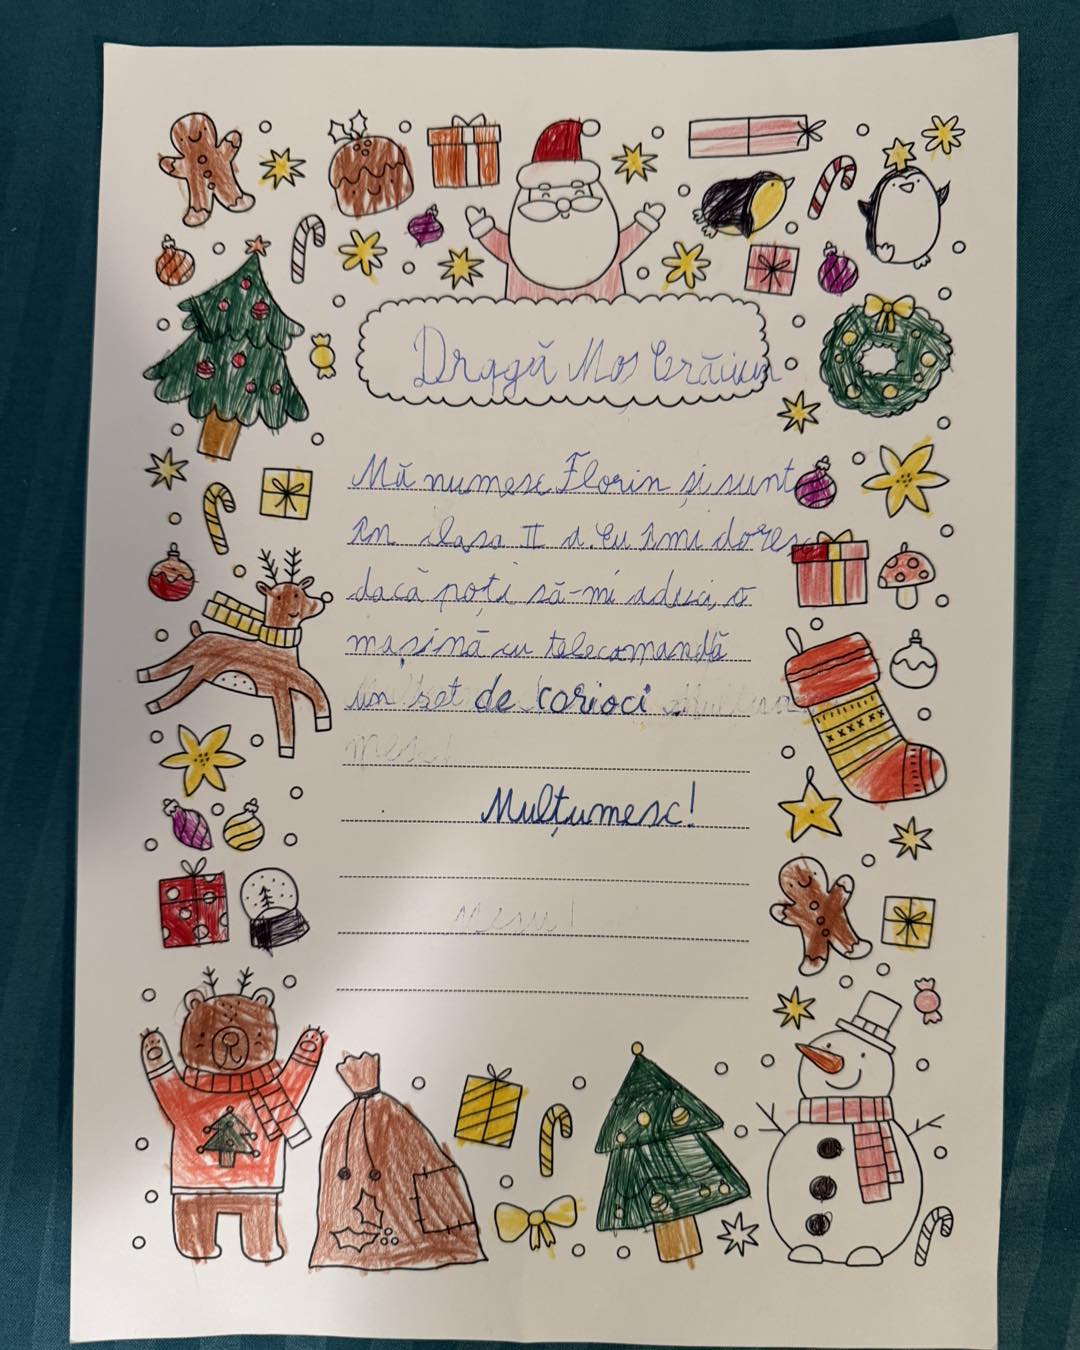 Dragă Moș Crăciun
Mă numesc Florin și sunt
în clasa II a. Eu îmi doresc
dacă poți să-mi aduci, o
mașină cu telecomandă
un set de carioci
mesc!
Mulțumesc!
mesc!